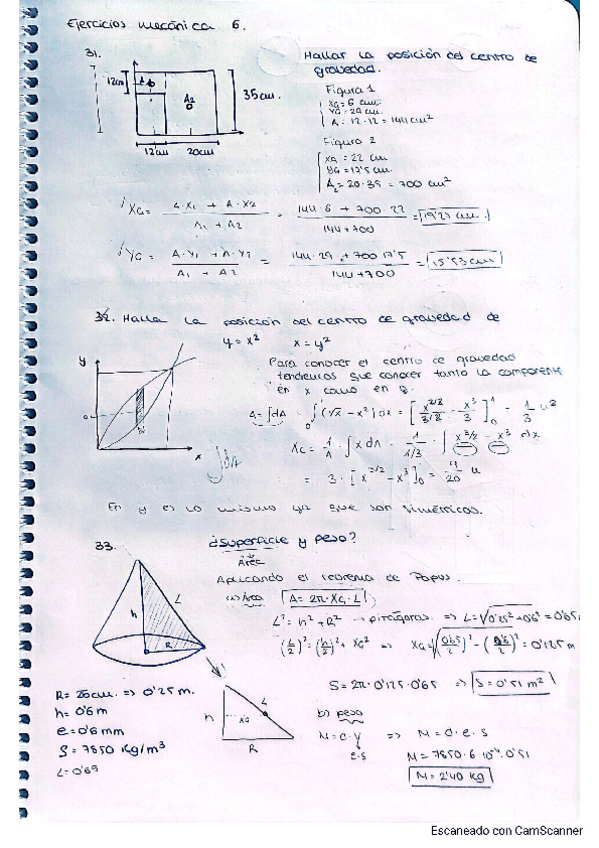 Ejercicios mecánica 6.
31. Hallar la posición del centro de gravedad.
12cm
A2
35cm.
12cm 20cm
Figura 1
XG = 6 cm
YG = 29 cm.
A = 12·12 = 144 cm²
Figura 2
XG = 22 cm
YG = 17'5 cm
A₂ = 20·35 = 700 cm²
XG = A·X1 + A·X2 / A1 + A2 = 144·6 + 700·22 / 144+700 = 19'27 cm.
YG = A·Y1 + A·Y2 / A1 + A2 = 144·29 + 700 17'5 / 144+700 = 15'53 cm
32. Halla la posición del centro de gravedad de
y = x² x = y²
Para conocer el centro de gravedad
tendremos que conocer tanto la componente
en x como en y.
y
x
A = ∫dA = ∫(√x - x²)dx = [x^3/2 / 3/2 - x³/3] = 1/3 u²
XC = 1/A · ∫x dA = 1/1/3 · ∫ x^3/2 - x³ dx
= 3·[ ] = 9/20 u
En y es lo mismo ya que son simétricos.
33. ¿Superficie y peso?
Área
Aplicando el teorema de Papus.
a) Área A = 2π·XG·L
L² = h² + R² → pitágoras. ⇒ L = √0'25² + 0'6² = 0'65
(L/2)² = (h/2)² + XG² ⇒ XG = √(0'65/2)² - (0'6/2)² = 0'125 m
S = 2π·0'125·0'65 ⇒ S = 0'51 m²
h L R
R = 25cm. ⇒ 0'25 m.
h = 0'6 m
e = 0'6 mm
ρ = 7850 Kg/m³
L = 0'65
h XG L
R
b) peso
M = ρ·V ⇒ M = ρ·e·S
e·S
M = 7850·6·10⁻⁴·0'51
M = 2'40 Kg
Escaneado con CamScanner